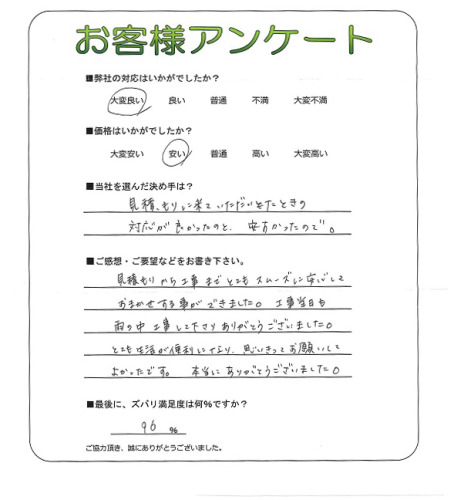 お客様アンケート
■弊社の対応はいかがでしたか？
大変良い 良い 普通 不満 大変不満
■価格はいかがでしたか？
大変安い 安い 普通 高い 大変高い
■当社を選んだ決め手は？
見積もりに来ていただいたときの
対応が良かったのと、安かったので。
■ご感想・ご要望などをお書き下さい。
見積もりから工事までとてもスムーズに安心して
おまかせする事ができました。工事当日も
雨の中工事して下さりありがとうございました。
とても生活が便利になり、思いきってお願いして
よかったです。本当にありがとうございました。
■最後に、ズバリ満足度は何％ですか？
96 %
ご協力頂き、誠にありがとうございました。